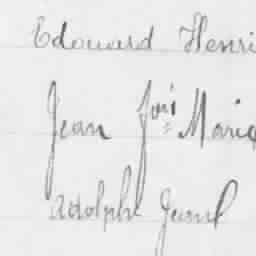 Edouard Henri
Jean Marie
Adolphe